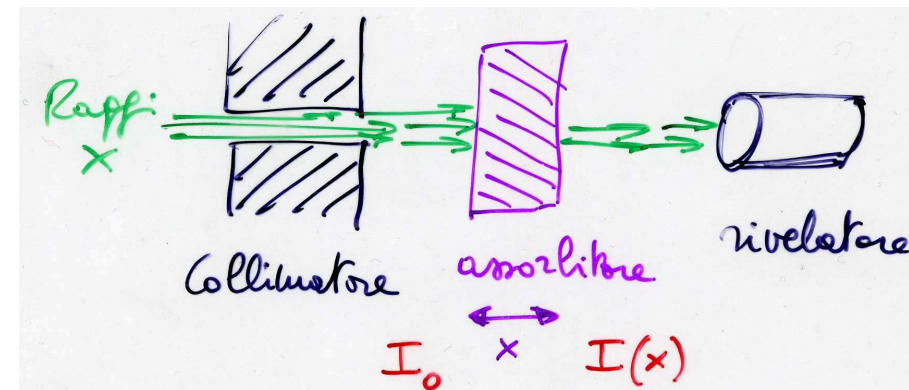 Raggi
X
Collimatore
assorbitore
rivelatore
I₀
x
I(x)